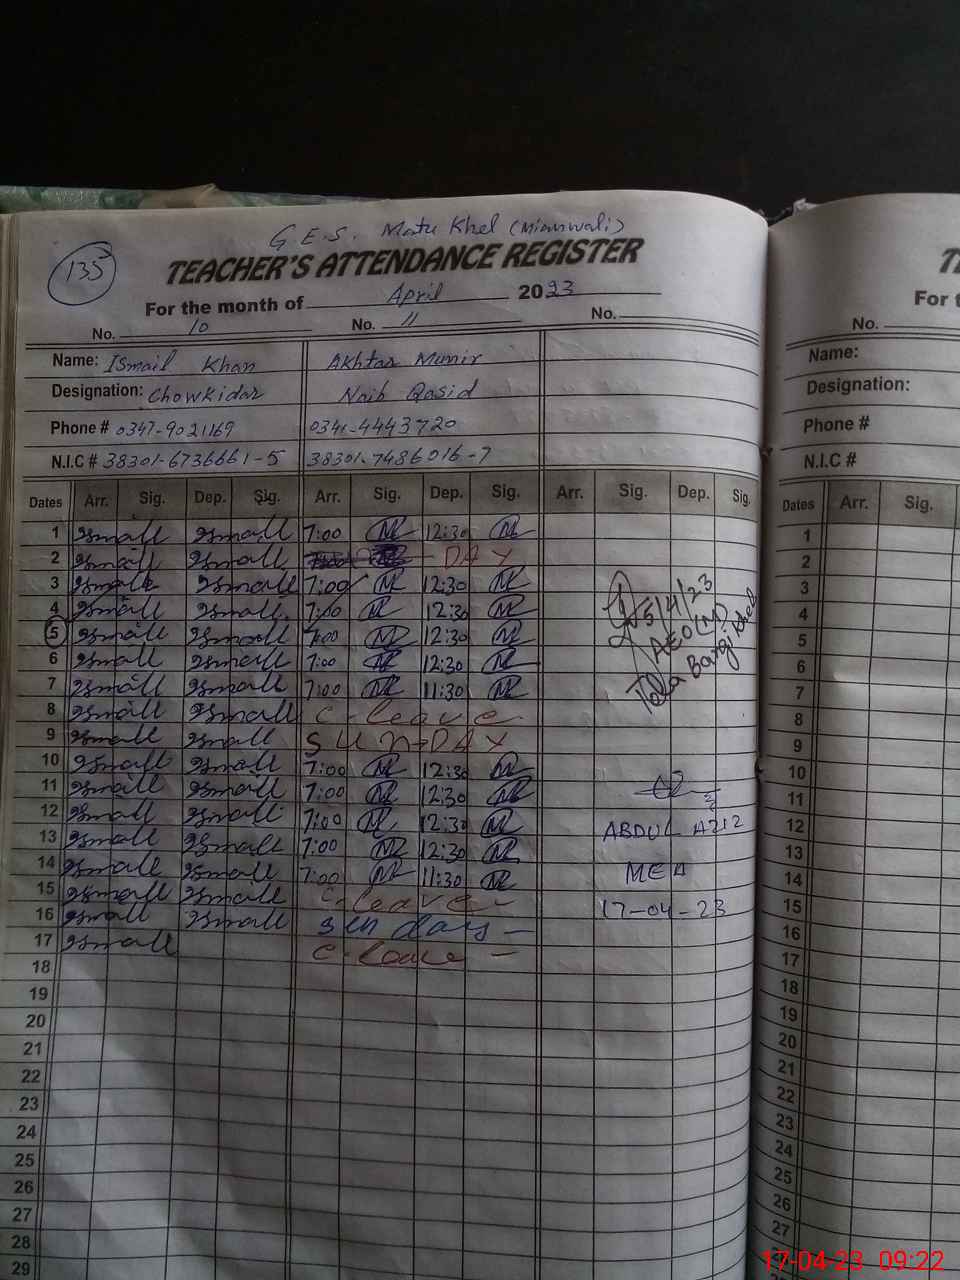 G.E.S. Matu Khel (Mianwali)
135
TEACHER'S ATTENDANCE REGISTER
For the month of April 2023
No. 10 No. 11 No.
Name: Ismail Khan Akhtar Munir
Designation: Chowkidar Naib Qasid
Phone # 0347-9021169 0341-4443720
N.I.C # 38301-6736661-5 38301-7486016-7
Dates Arr. Sig. Dep. Sig. Arr. Sig. Dep. Sig. Arr. Sig. Dep. Sig.
1 Ismail Ismail 7:00 12:30
2 Ismail Ismail DAY
3 Ismail Ismail 7:00 12:30
4 Ismail Ismail 7:00 12:30
5 Ismail Ismail 7:00 12:30
6 Ismail Ismail 7:00 12:30
7 Ismail Ismail 7:00 11:30
8 Ismail Ismail C-leave
9 Ismail Ismail SUN-DAY
10 Ismail Ismail 7:00 12:30
11 Ismail Ismail 7:00 12:30
12 Ismail Ismail 7:00 12:30
13 Ismail Ismail 7:00 12:30
14 Ismail Ismail 7:00 11:30
15 Ismail Ismail C-leave-
16 Ismail Ismail sun days -
17 Ismail C-leave -
18
19
20
21
22
23
24
25
26
27
28
29
5/4/23
AEO (M)
Tola Bangi Khel
ABDUL AZIZ
MEA
17-04-23
For t
No.
Name:
Designation:
Phone #
N.I.C #
Dates Arr. Sig.
1
2
3
4
5
6
7
8
9
10
11
12
13
14
15
16
17
18
19
20
21
22
23
24
25
26
27
28
17-04-23 09:22